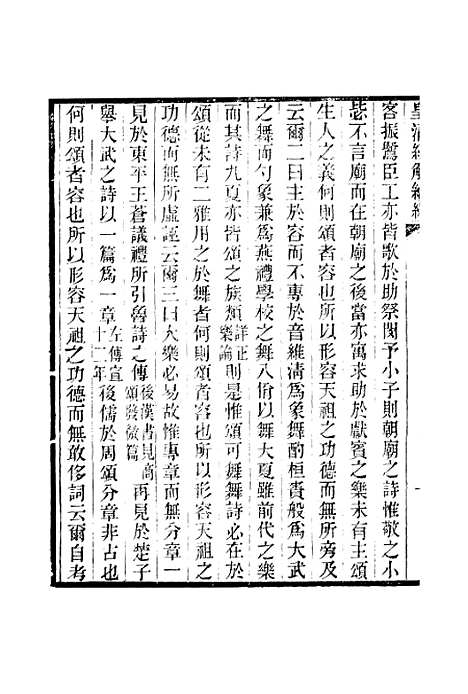 皇清經解續編
客振鷺臣工亦皆歌於助祭閔予小子則朝廟之詩惟敬之小
毖不言廟而在朝廟之後當亦寓求助於獻賓之樂未有主頌
生人之義何則頌者容也所以形容天祖之功德而無所旁及
云爾二曰主於容而不專於音維清為象舞酌桓賚般為大武
之舞而勺象兼為燕禮學校之舞八佾以舞大夏雖前代之樂
而其詩九夏亦皆頌之族類詳正樂論則是惟頌可舞舞詩必在於
頌從未有二雅用之於舞者何則頌者容也所以形容天祖之
功德而無所虛誣云爾三曰大樂必易故惟專章而無分章一
見於東平王蒼議禮所引魯詩之傳後漢書見商頌發微篇再見於楚子
舉大武之詩以一篇為一章左傳宣十二年後儒於周頌分章非古也
何則頌者容也所以形容天祖之功德而無敢侈詞云爾自考